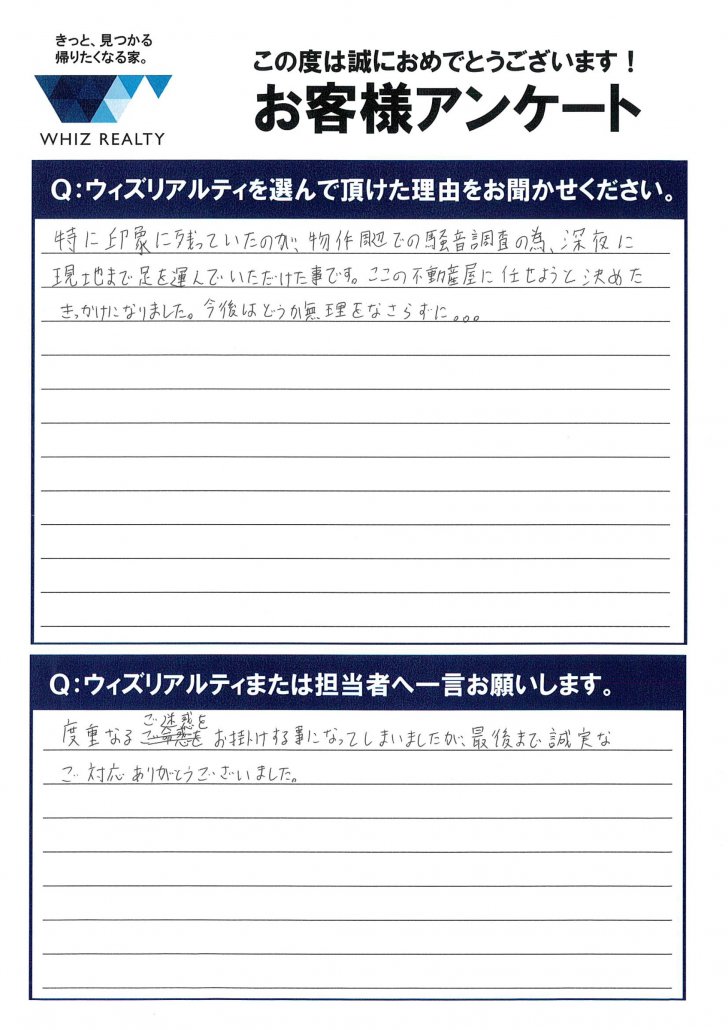 きっと、見つかる
帰りたくなる家。
WHIZ REALTY
この度は誠におめでとうございます！
お客様アンケート
Q：ウィズリアルティを選んで頂けた理由をお聞かせください。
特に印象に残っていたのが、物件周辺での騒音調査の為、深夜に
現地まで足を運んでいただけた事です。ここの不動産屋に任せようと決めた
きっかけになりました。今後はどうか無理をなさらずに。。。
Q：ウィズリアルティまたは担当者へ一言お願いします。
ご迷惑を
度重なる お掛けする事になってしまいましたが、最後まで誠実な
ご対応ありがとうございました。